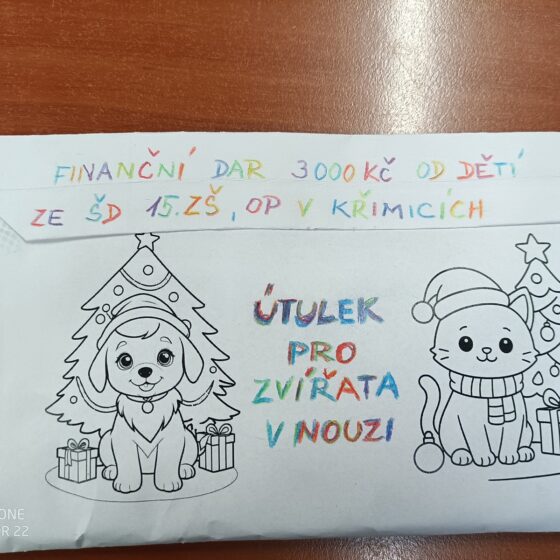 FINANČNÍ DAR 3000 KČ OD DĚTÍ
ZE ŠD 15.ZŠ, OP V KŘIMICÍCH
ÚTULEK
PRO
ZVÍŘATA
V NOUZI
ONE
R 22